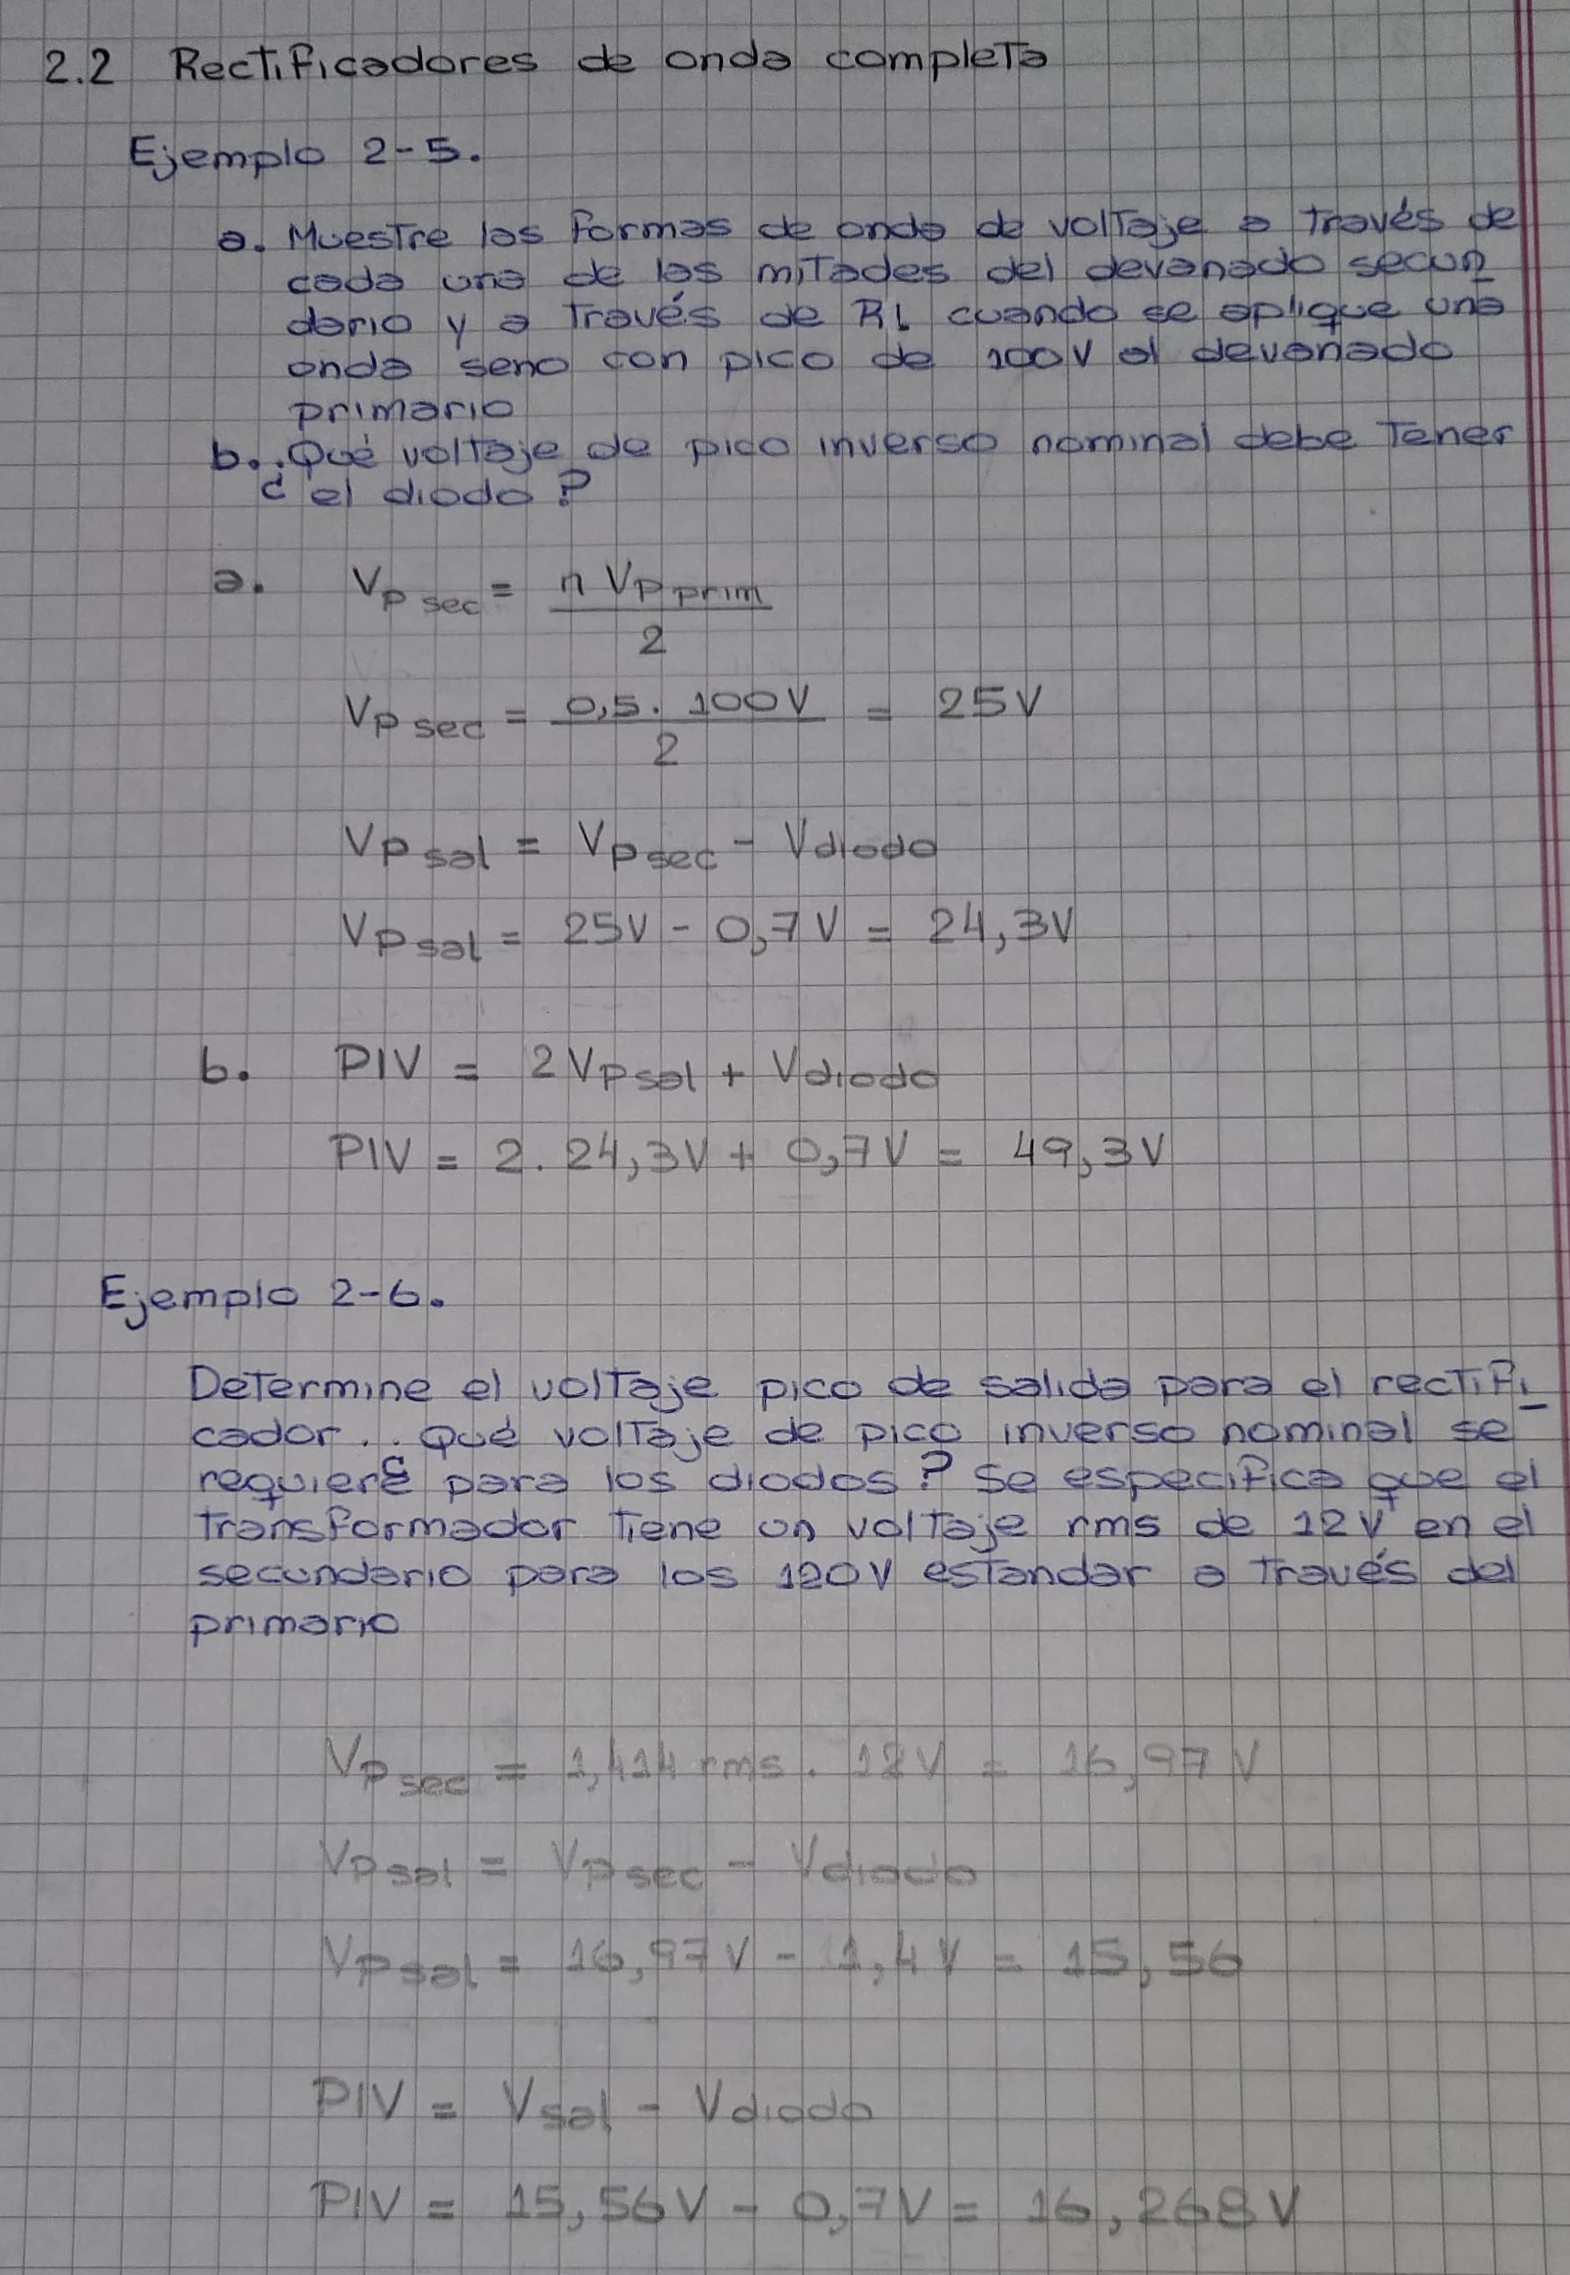 2.2 Rectificadores de onda completa
Ejemplo 2-5.
a. Muestre las formas de onda de voltaje a través de
cada una de las mitades del devanado secun
dario y a través de RL cuando se aplique una
onda seno con pico de 100V al devanado
primario
b. ¿Qué voltaje de pico inverso nominal debe tener
el diodo?
a. Vp sec = n Vp prim / 2
Vp sec = 0,5 . 100V / 2 = 25V
Vp sal = Vp sec - Vdiodo
Vp sal = 25V - 0,7V = 24,3V
b. PIV = 2Vp sal + Vdiodo
PIV = 2. 24,3V + 0,7V = 49,3V
Ejemplo 2-6.
Determine el voltaje pico de salida para el rectifi_
cador. ¿Qué voltaje de pico inverso nominal se
requiere para los diodos? Se especifica que el
transformador tiene un voltaje rms de 12V en el
secundario para los 120V estandar a través del
primario
Vp sec = 1,414 rms . 12V = 16,97V
Vp sal = Vp sec - Vdiodo
Vp sal = 16,97V - 1,4V = 15,56
PIV = Vsal - Vdiodo
PIV = 15,56V - 0,7V = 16,268V